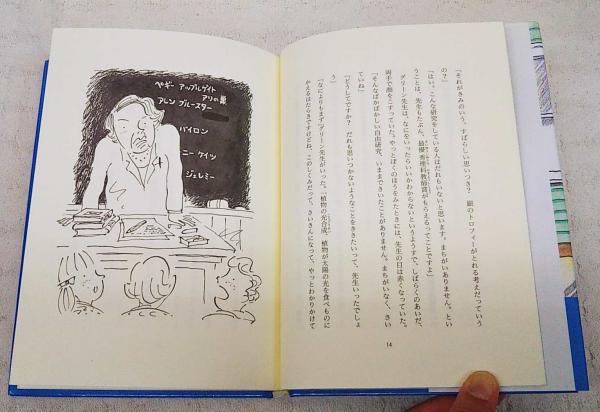 「それがきみのいう、すばらしい思いつき？　銀のトロフィーがとれる考えだっていう
の？」
「はい。こんな研究をしている人はだれもいないと思います。まちがいありません。とい
うことは、先生もたぶん、最優秀理科教師賞がもらえるってことですよ」
グリーン先生は、なにをいったらいいかわからないというようすで、しばらくのあいだ、
両手で顔をこすっていた。やっとぼくのほうをみたときには、先生の目は赤くなっていた。
「そんなばかばかしい自由研究、いままできいたことがありません。まちがいなく、さい
ていね」
「どうしてですか？　だれも思いつかないようなことをききたいって、先生いったでしょ
う」
「なによりもまず」グリーン先生がいった。「植物の光合成。植物が太陽の光を食べものに
かえるはたらきですけどね、このしくみだって、さいさんになって、やっとわかりかけて
14
ペギー アップルゲイト
アリの巣
アレン ブルースター
バイロン
ニー ケイツ
ジェレミー